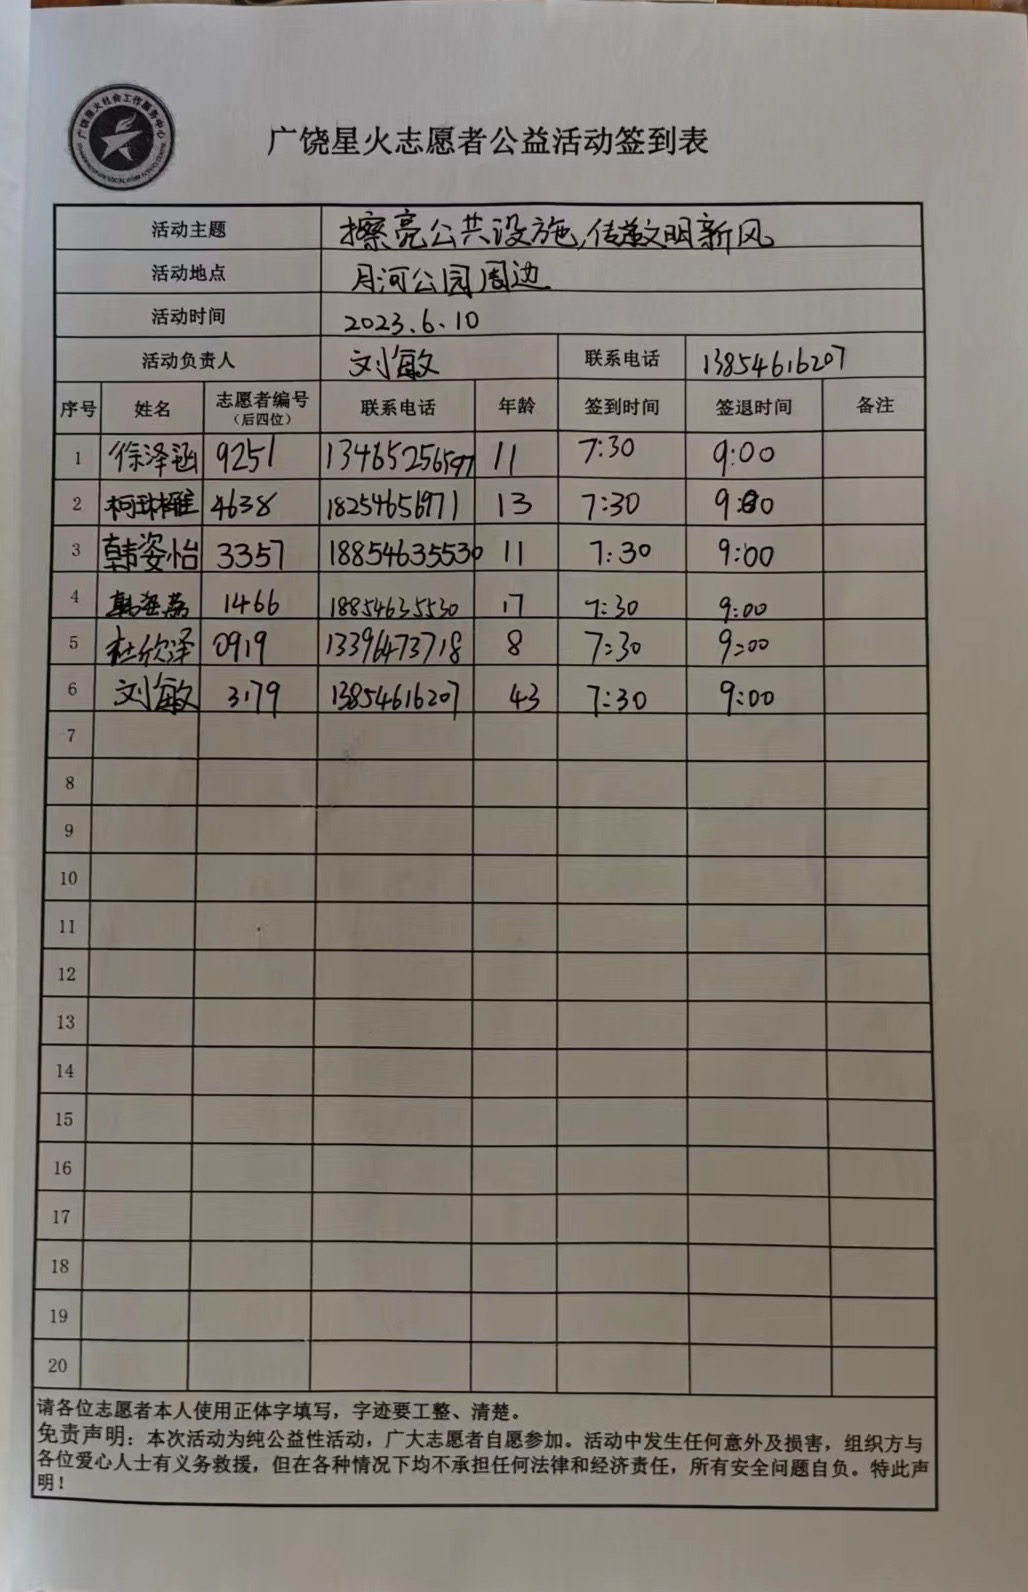 广饶星火社会工作服务中心
广饶星火志愿者公益活动签到表
活动主题 擦亮公共设施,传递文明新风
活动地点 月河公园周边
活动时间 2023.6.10
活动负责人 刘敏 联系电话 13854616207
序号 姓名 志愿者编号 联系电话 年龄 签到时间 签退时间 备注
(后四位)
1 徐泽涵 9251 13465256597 11 7:30 9:00
2 柯琳雅 4638 18254656971 13 7:30 9:00
3 韩姿怡 3357 18854635530 11 7:30 9:00
4 1466 18854635530 17 7:30 9:00
5 杜欣泽 0919 13396473718 8 7:30 9:00
6 刘敏 3179 13854616207 43 7:30 9:00
7
8
9
10
11
12
13
14
15
16
17
18
19
20
请各位志愿者本人使用正体字填写，字迹要工整、清楚。
免责声明：本次活动为纯公益性活动，广大志愿者自愿参加。活动中发生任何意外及损害，组织方与
各位爱心人士有义务救援，但在各种情况下均不承担任何法律和经济责任，所有安全问题自负。特此声
明！